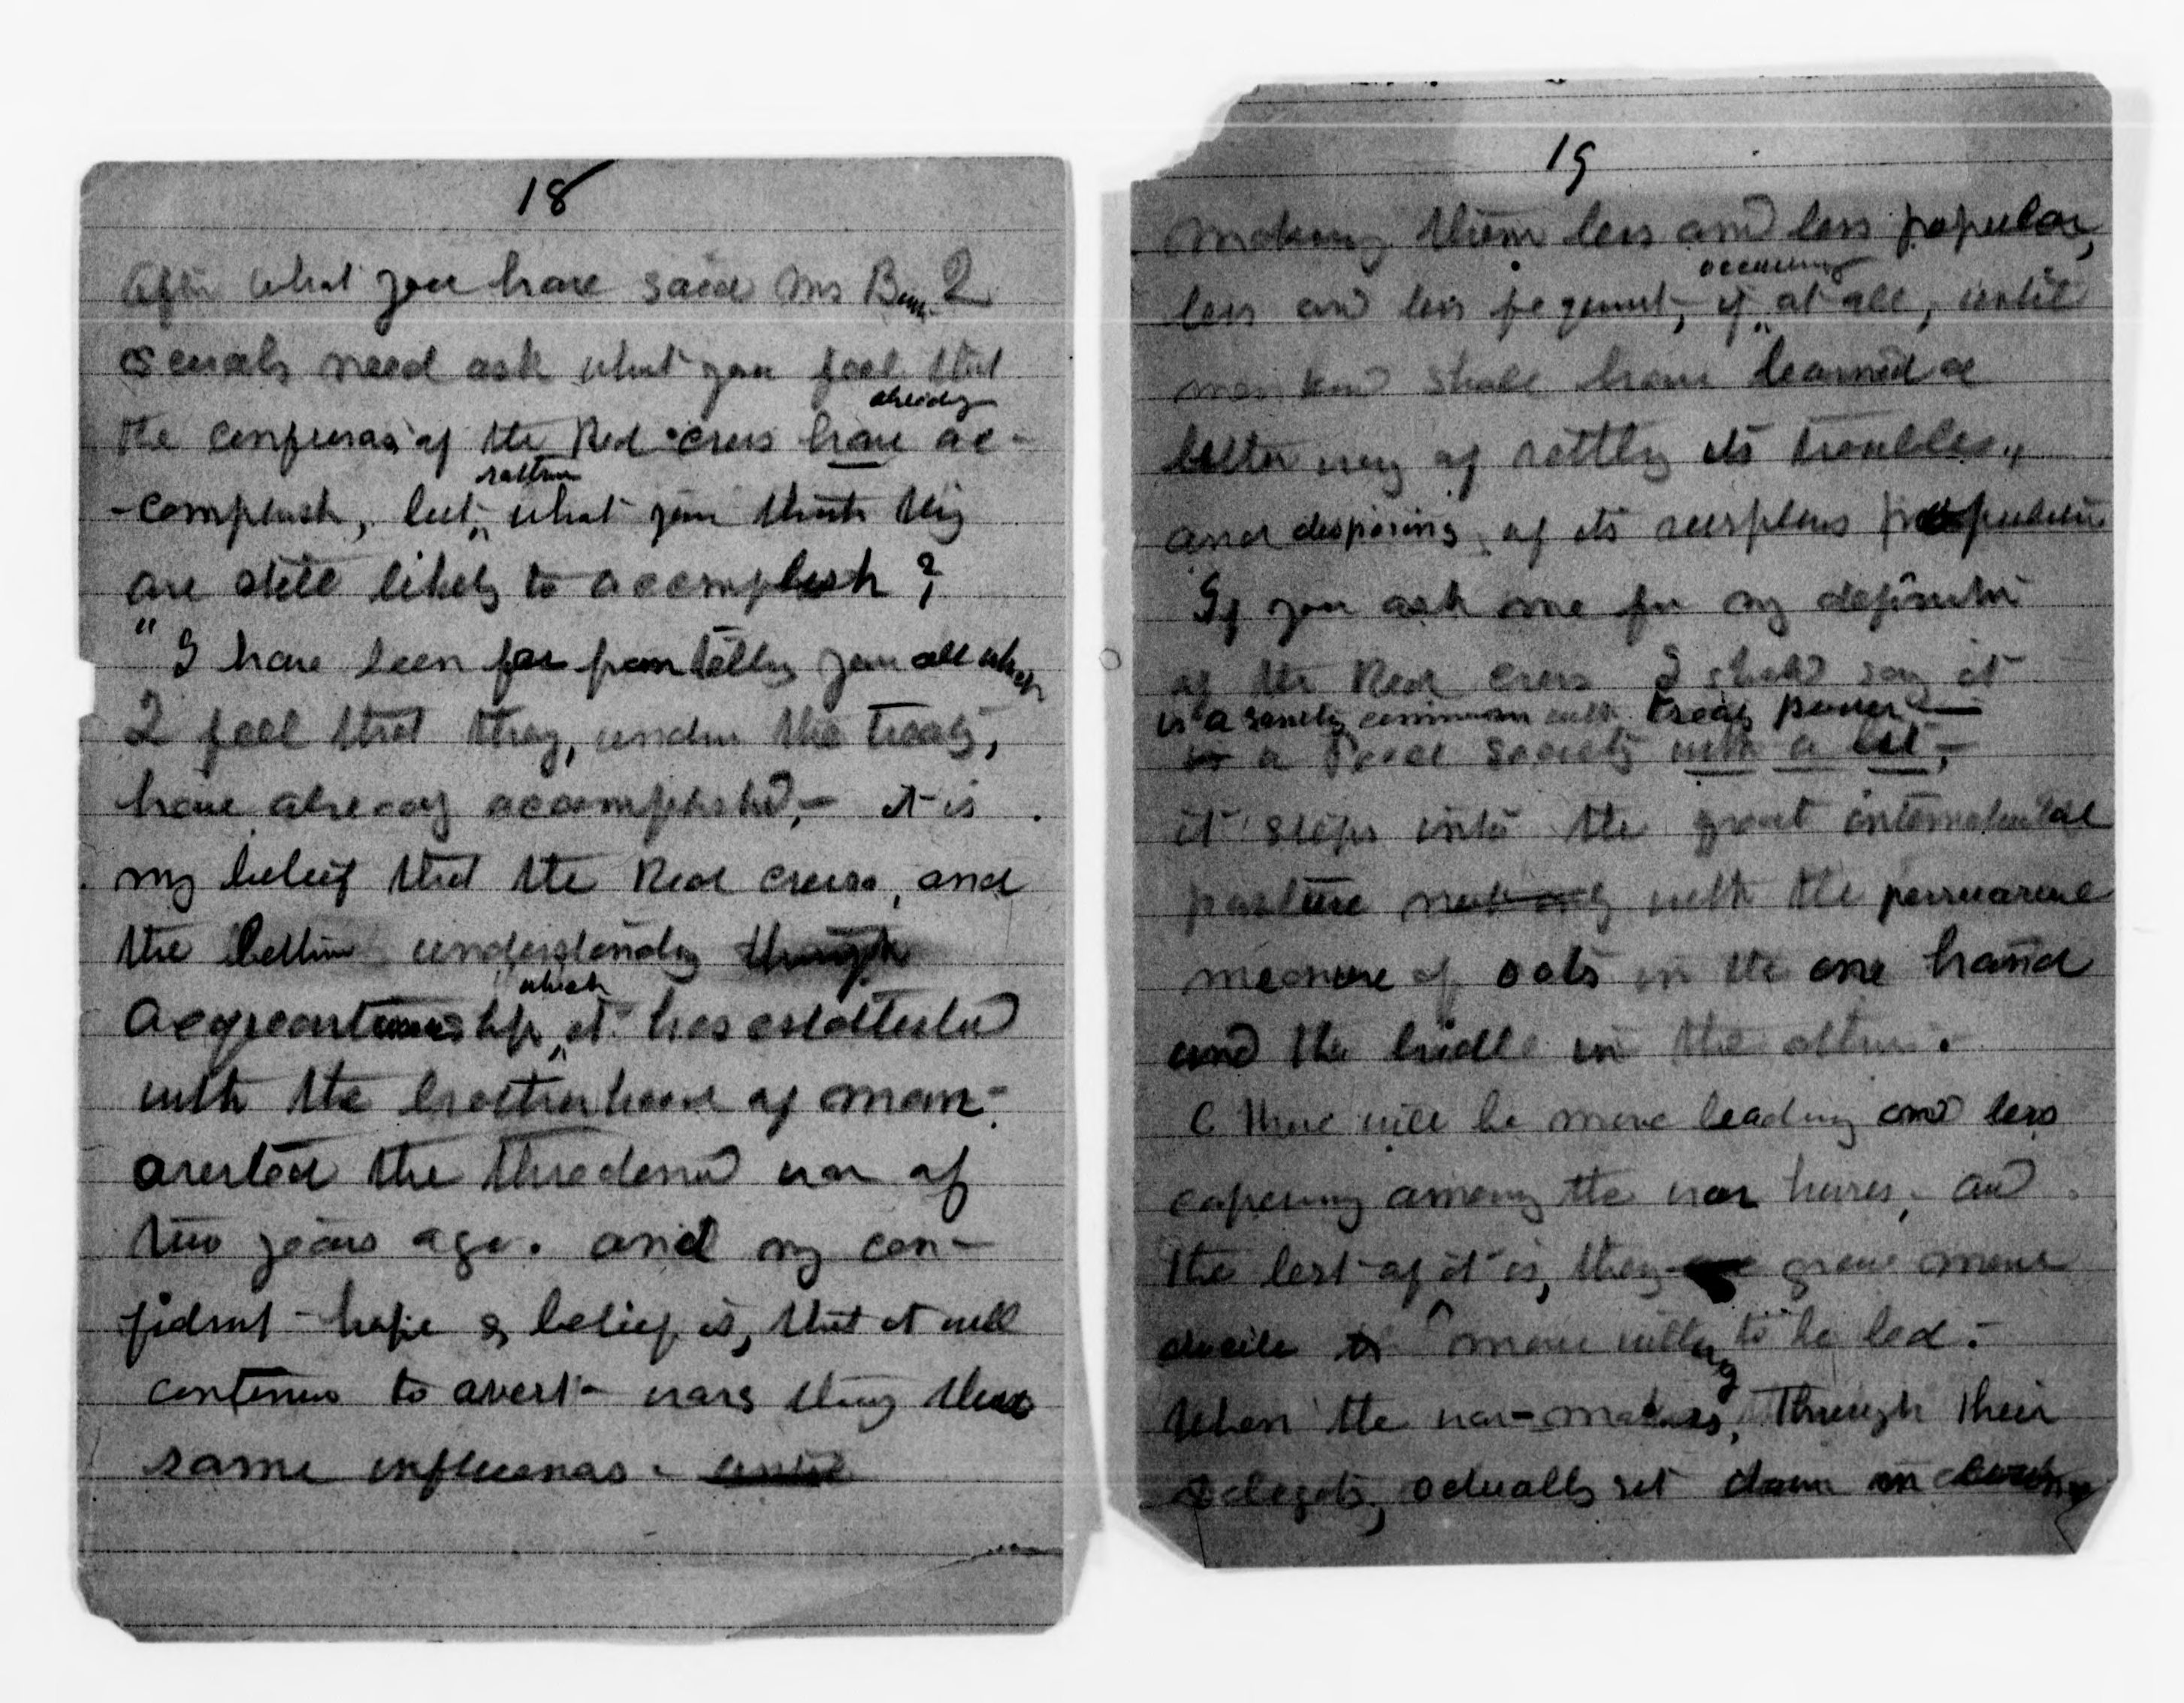 18
After what you have said Ms B I
scarcely need ask what you feel that
already
the conferences of the Red cross have ac-
rather
-complish, but, what you think they
are still likely to accomplish?
"I have been far from telling you all which
I feel that they, under the treaty,
have already accomplishd,- it is
my belief that the Red cross, and
the better understanding through
which
acquaintanceship it has established
with the brotherhood of man-
averted the threatend war of
two years ago. and my con-
fident hope & belief is, that it will
continue to avert wars thing these
same influences - until
19
making them less and less popular,
occurring
less and less frequent, if at all, until
mankind shall have learned a
better way of settling its troubles,
and disposing of its surplus population
If you ask me for my definition
of the Red cross I should say it
is a society common with treaty power-
is a Peace society with a bit,-
it steps into the great international
pasture not only with the
measure of oats in the one hand
and the bridle in the other.
There will be more leading and less
capering among the war horses, and
the best of it is, they are grow more
docile & more willing to be led.-
When the war-makers, through their
delegates, actually set down in